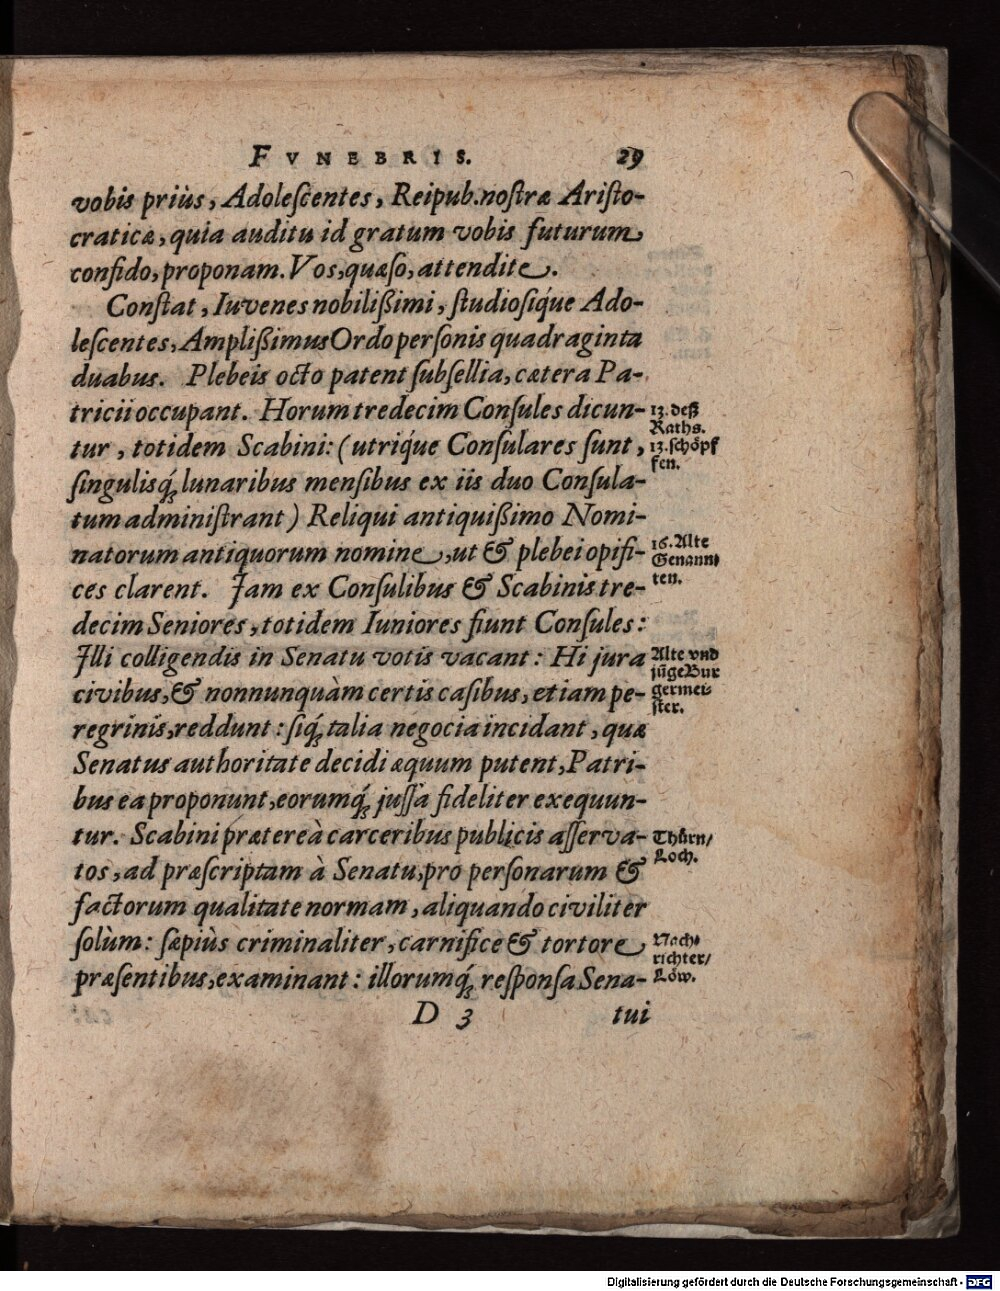 FVNEBRIS. 29
vobis priùs, Adoleſcentes, Reipub. noſtræ Ariſto-
craticæ, quia auditu id gratum vobis futurum
confido, proponam. Vos, quæſo, attendite.
Conſtat, Iuvenes nobilißimi, ſtudioſiq́ue Ado-
leſcentes, Amplißimus Ordo perſonis quadraginta
duabus. Plebeis octo patent ſubſellia, cætera Pa-
tricii occupant. Horum tredecim Conſules dicun-
13. deß
Raths.
tur, totidem Scabini: (utriq́ue Conſulares ſunt,
13. ſchöpf
fen.
ſingulisq́; lunaribus menſibus ex iis duo Conſula-
tum adminiſtrant) Reliqui antiquißimo Nomi-
natorum antiquorum nomine, ut & plebei opifi-
16. Alte
Genann⸗
ten.
ces clarent. Jam ex Conſulibus & Scabinis tre-
decim Seniores, totidem Iuniores fiunt Conſules:
Jlli colligendis in Senatu votis vacant: Hi jura
Alte vnd
jũge Bur
germei⸗
ſter.
civibus, & nonnunquàm certis caſibus, etiam pe-
regrinis, reddunt: ſiq́; talia negocia incidant, quæ
Senatus authoritate decidi æquum putent, Patri-
bus ea proponunt, eorumq́; juſſa fideliter exequun-
tur. Scabini prætereà carceribus publicis aſſerva-
Thürn/
Loch.
tos, ad præſcriptam à Senatu, pro perſonarum &
factorum qualitate normam, aliquando civiliter
ſolùm: ſæpiùs criminaliter, carnifice & tortore
Nach⸗
richter/
Löw.
præſentibus, examinant: illorumq́; reſponſa Sena-
D 3 tui
Digitalisierung gefördert durch die Deutsche Forschungsgemeinschaft - DFG